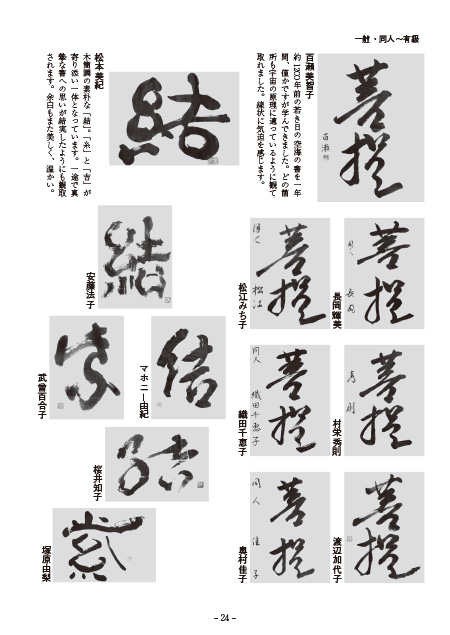 一般・同人〜有級
菩提
百瀬
百瀬 美智子
約1200年前の若き日の空海の書を一年
間、僅かですが学んできました。どの箇
所も宇宙の原理に適っているように観て
取れました。線状に気迫を感じます。
結
松本 美紀
木簡調の素朴な「結」。「糸」と「吉」が
寄り添い一体となっています。一途で真
摯な書への思いが結実したようにも観取
されます。余白もまた美しく、温かい。
菩提
長岡輝美
菩提
同人 松江
松江みち子
結
安藤法子
菩提
秀則
村栄秀則
菩提
同人 織田千恵子
織田千恵子
結
マホニー由紀
武曽百合子
菩提
渡辺加代子
菩提
同人 佳子
奥村佳子
結
桜井知子
塚原由梨
– 24 –